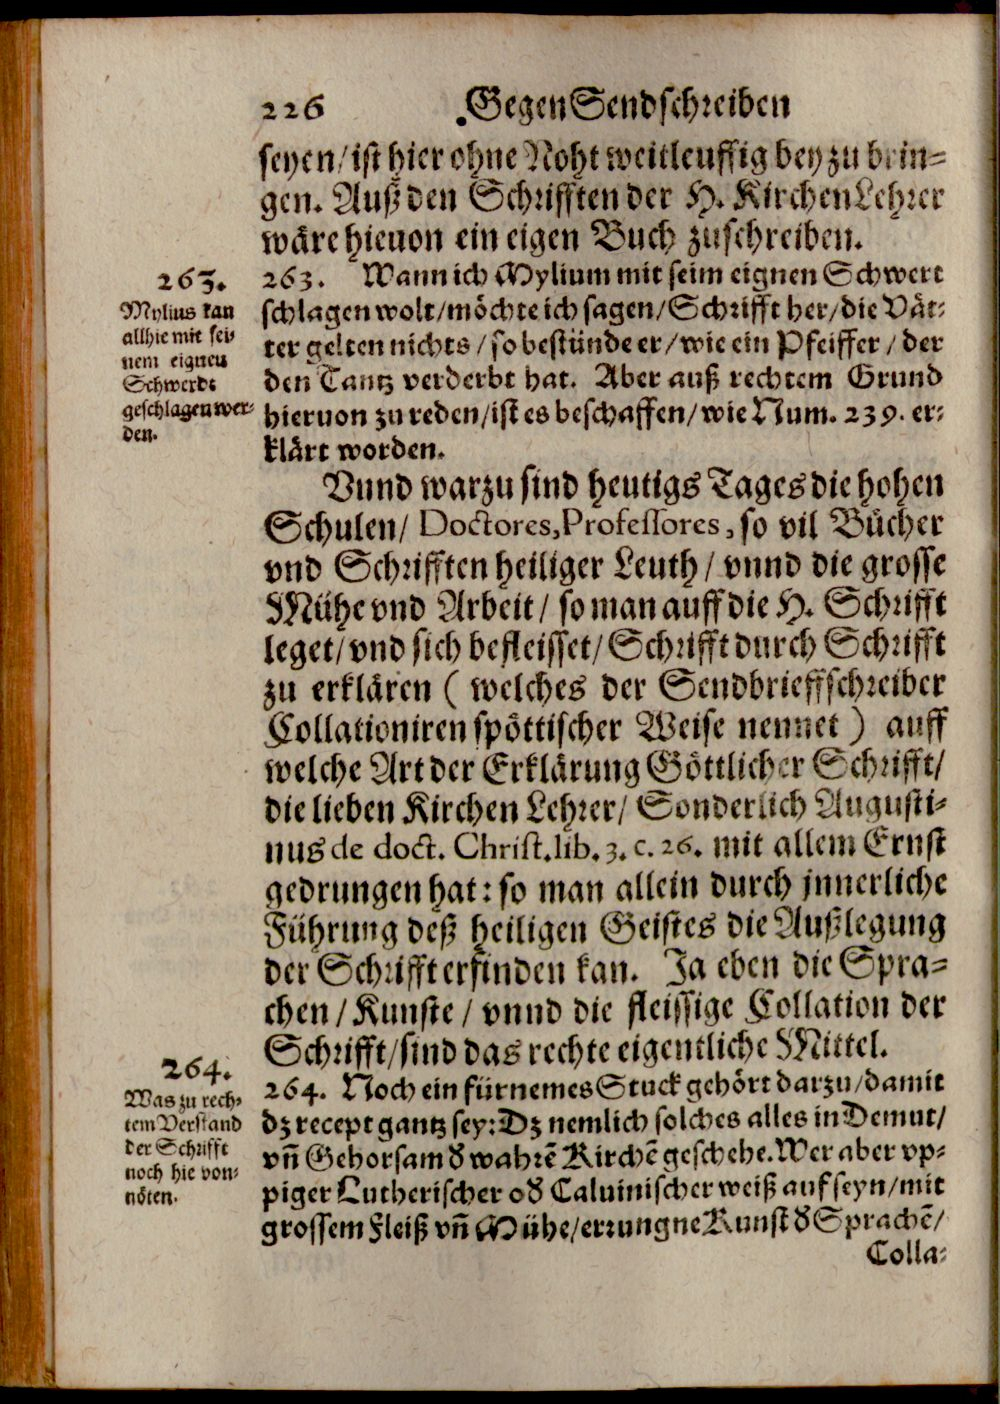 226 GegenSendschreiben
seyen/ist hier ohne Noht weitleuffig bey zu brin-
gen. Auß den Schrifften der H. KirchenLehrer
wäre hieuon ein eigen Buch zuschreiben.
263.
Mylius kan
allhie mit sei-
nem eignen
Schwerdt
geschlagen wer-
den.
263. Wann ich Mylium mit seim eignen Schwert
schlagen wolt/möchte ich sagen/Schrifft her/die Vät-
ter gelten nichts/so bestünde er/wie ein Pfeiffer/der
den Tantz verderbt hat. Aber auß rechtem Grund
hieruon zu reden/ist es beschaffen/wie Num. 239. er-
klärt worden.
Vund warzu sind heutigs Tages die hohen
Schulen/ Doctores, Professores, so vil Bücher
vnd Schrifften heiliger Leuth/ vnnd die grosse
Mühe vnd Arbeit/ so man auff die H. Schrifft
leget/vnd sich befleisset/Schrifft durch Schrifft
zu erklären ( welches der Sendbrieffschreiber
Collationiren spöttischer Weise nennet ) auff
welche Art der Erklärung Göttlicher Schrifft/
die lieben Kirchen Lehrer/ Sonderlich Augusti-
nus de doct. Christ. lib. 3. c. 26. mit allem Ernst
gedrungen hat: so man allein durch jnnerliche
Führung deß heiligen Geistes die Außlegung
der Schrifft erfinden kan. Ja eben die Spra-
chen/Kunste/ vnnd die fleissige Collation der
Schrifft/sind das rechte eigentliche Mittel.
264.
Was zu rech-
tem Verstand
der Schrifft
noch hie von-
nöten.
264. Noch ein fürnemes Stuck gehört darzu/damit
dz recept gantz sey: Dz nemlich solches alles in Demut/
vñ Gehorsam d' wahrẽ Kirchẽ geschehe. Wer aber vp-
piger Lutherischer od' Caluinischer weiß auf seyn/mit
grossem Fleiß vñ Mühe/errungne Kunst d' Sprachẽ/
Colla-